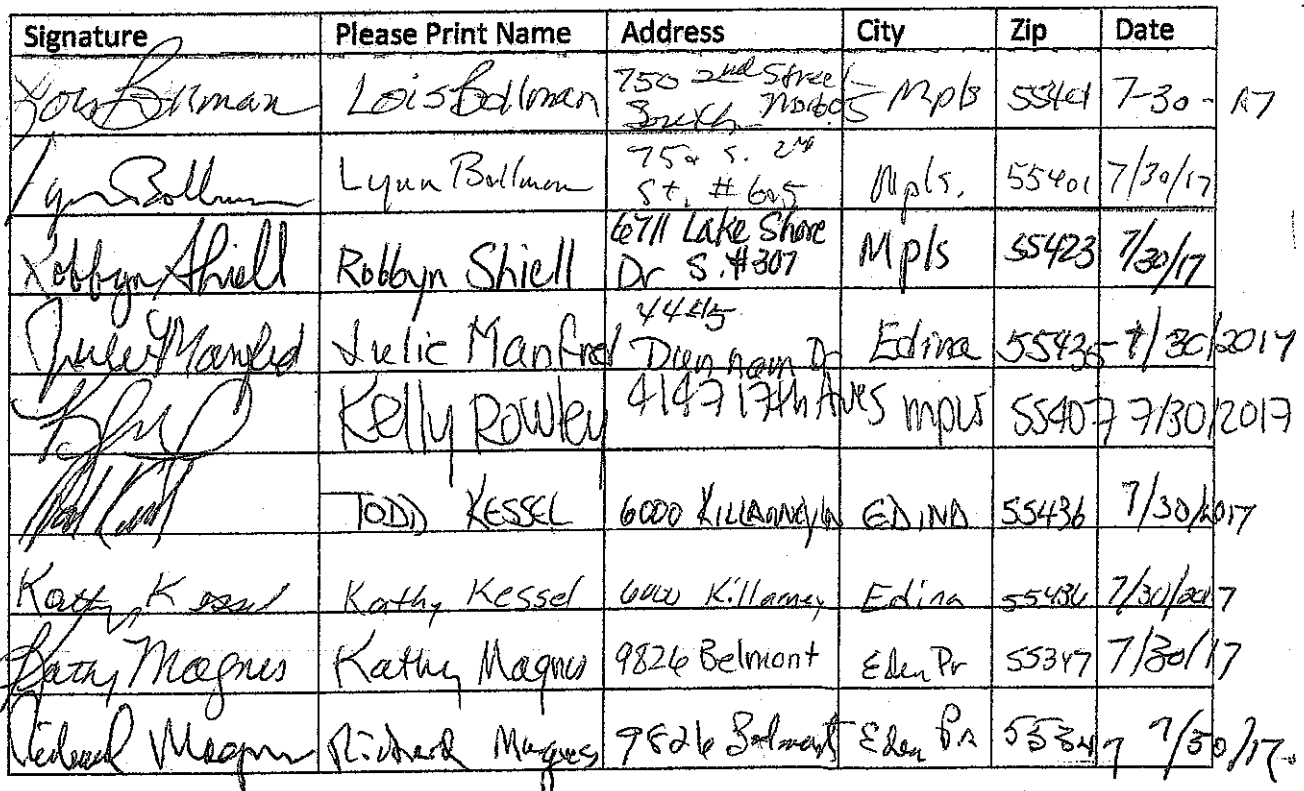 Signature Please Print Name Address City Zip Date
Lois Bollman Lois Bollman 750 2nd Street South No 605 Mpls 55401 7-30-17
Lynn Bollman Lynn Bollman 750 S. 2nd St. #605 Mpls. 55401 7/30/17
Robbyn Shiell Robbyn Shiell 6711 Lake Shore Dr S. #307 Mpls 55423 7/30/17
Julie Manfred Julie Manfred Dunham Dr Edina 55435 7/30/2017
Kelly Rowley 4147 17th Ave S mpls 55407 7/30/2017
TODD KESSEL 6000 KILLARNEY LN EDINA 55436 7/30/2017
Kathy Kessel Kathy Kessel 6000 Killarney Edina 55436 7/30/2017
Kathy Magnus Kathy Magnus 9826 Belmont Eden Pr 55347 7/30/17
Richard Magnus Richard Magnus 9826 Belmont Eden Pr 55347 7/30/17